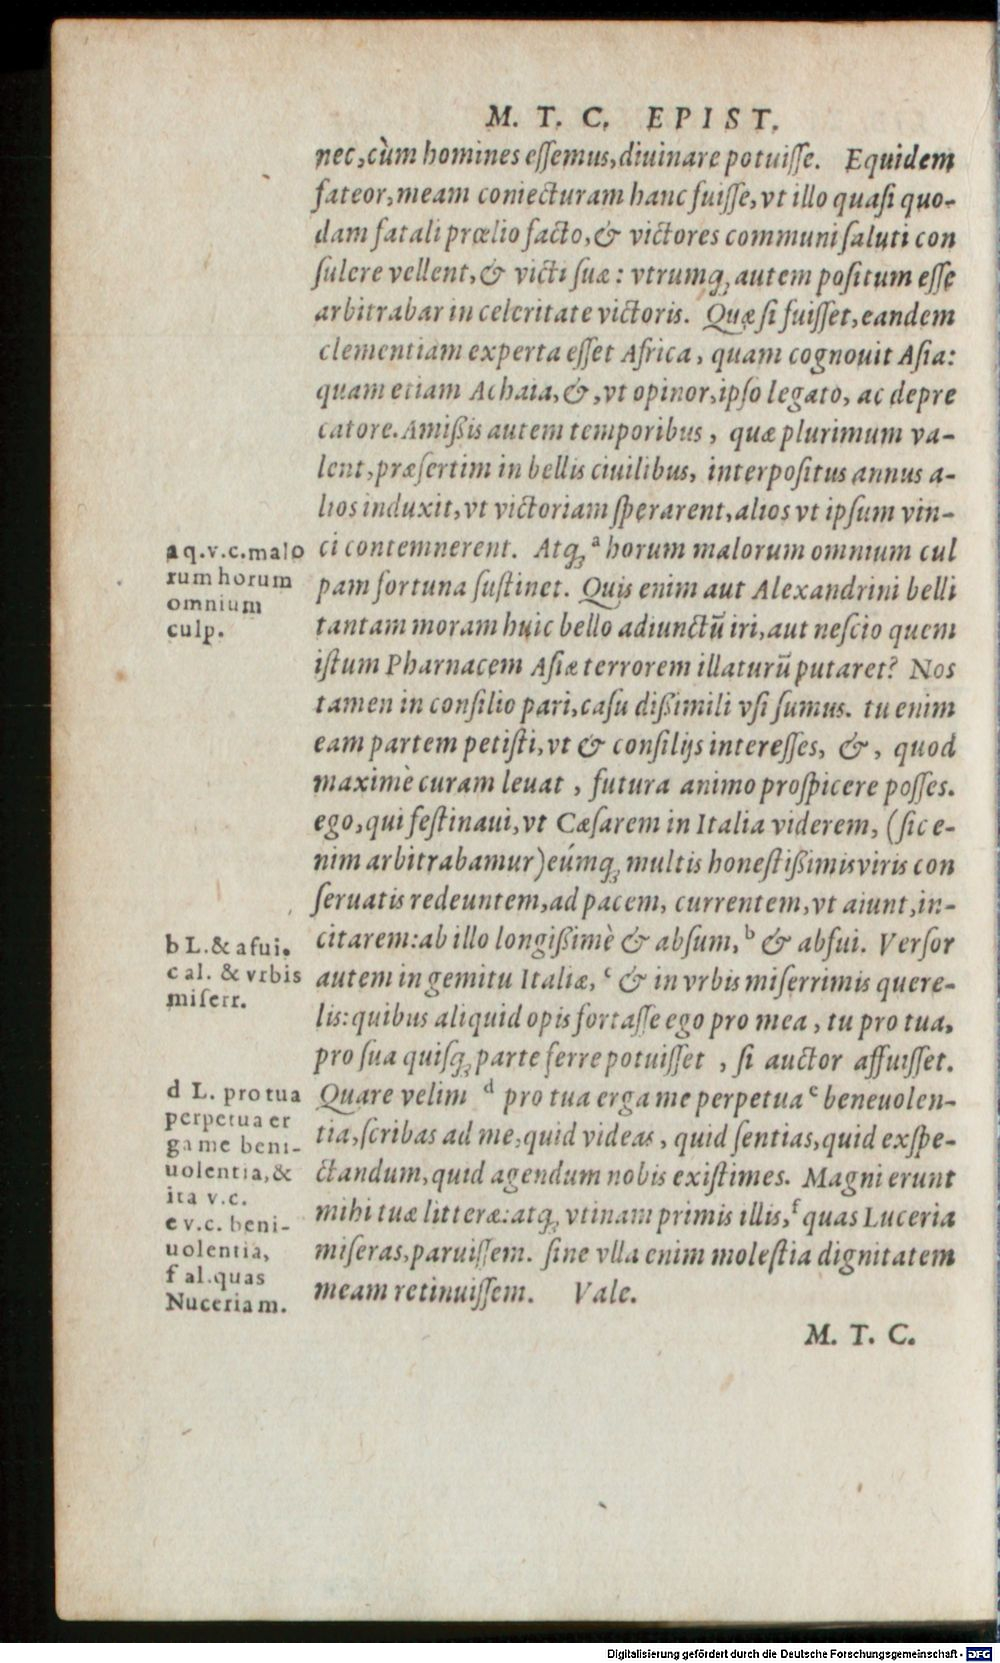 M. T. C. EPIST.
nec, cùm homines essemus, diuinare potuisse. Equidem
fateor, meam coniecturam hanc fuisse, vt illo quasi quo-
dam fatali prœlio facto, & victores communi saluti con
sulere vellent, & victi suæ: vtrumq́; autem positum esse
arbitrabar in celeritate victoris. Quæ si fuisset, eandem
clementiam experta esset Africa, quam cognouit Asia:
quam etiam Achaia, &, vt opinor, ipso legato, ac depre
catore. Amißis autem temporibus, quæ plurimum va-
lent, præsertim in bellis ciuilibus, interpositus annus a-
lios induxit, vt victoriam sperarent, alios vt ipsum vin-
ci contemnerent. Atq; a horum malorum omnium cul
pam fortuna sustinet. Quis enim aut Alexandrini belli
tantam moram huic bello adiunctū iri, aut nescio quem
istum Pharnacem Asiæ terrorem illaturū putaret? Nos
tamen in consilio pari, casu dißimili vsi sumus. tu enim
eam partem petisti, vt & consilijs interesses, &, quod
maximè curam leuat, futura animo prospicere posses.
ego, qui festinaui, vt Cæsarem in Italia viderem, (sic e-
nim arbitrabamur) eúmq; multis honestißimis viris con
seruatis redeuntem, ad pacem, currentem, vt aiunt, in-
citarem: ab illo longißimè & absum, b & abfui. Versor
autem in gemitu Italiæ, c & in vrbis miserrimis quere-
lis: quibus aliquid opis fortasse ego pro mea, tu pro tua,
pro sua quisq; parte ferre potuisset, si auctor affuisset.
Quare velim d pro tua erga me perpetua e beneuolen-
tia, scribas ad me, quid videas, quid sentias, quid exspe-
ctandum, quid agendum nobis existimes. Magni erunt
mihi tuæ litteræ: atq; vtinam primis illis, f quas Luceria
miseras, paruissem. sine vlla enim molestia dignitatem
meam retinuissem. Vale.
M. T. C.
a q.v.c. malo
rum horum
omnium
culp.
b L. & afui.
c al. & vrbis
miserr.
d L. pro tua
perpetua er
ga me beni-
uolentia, &
ita v.c.
e v.c. beni-
uolentia,
f al. quas
Nuceriam.
Digitalisierung gefördert durch die Deutsche Forschungsgemeinschaft - DFG